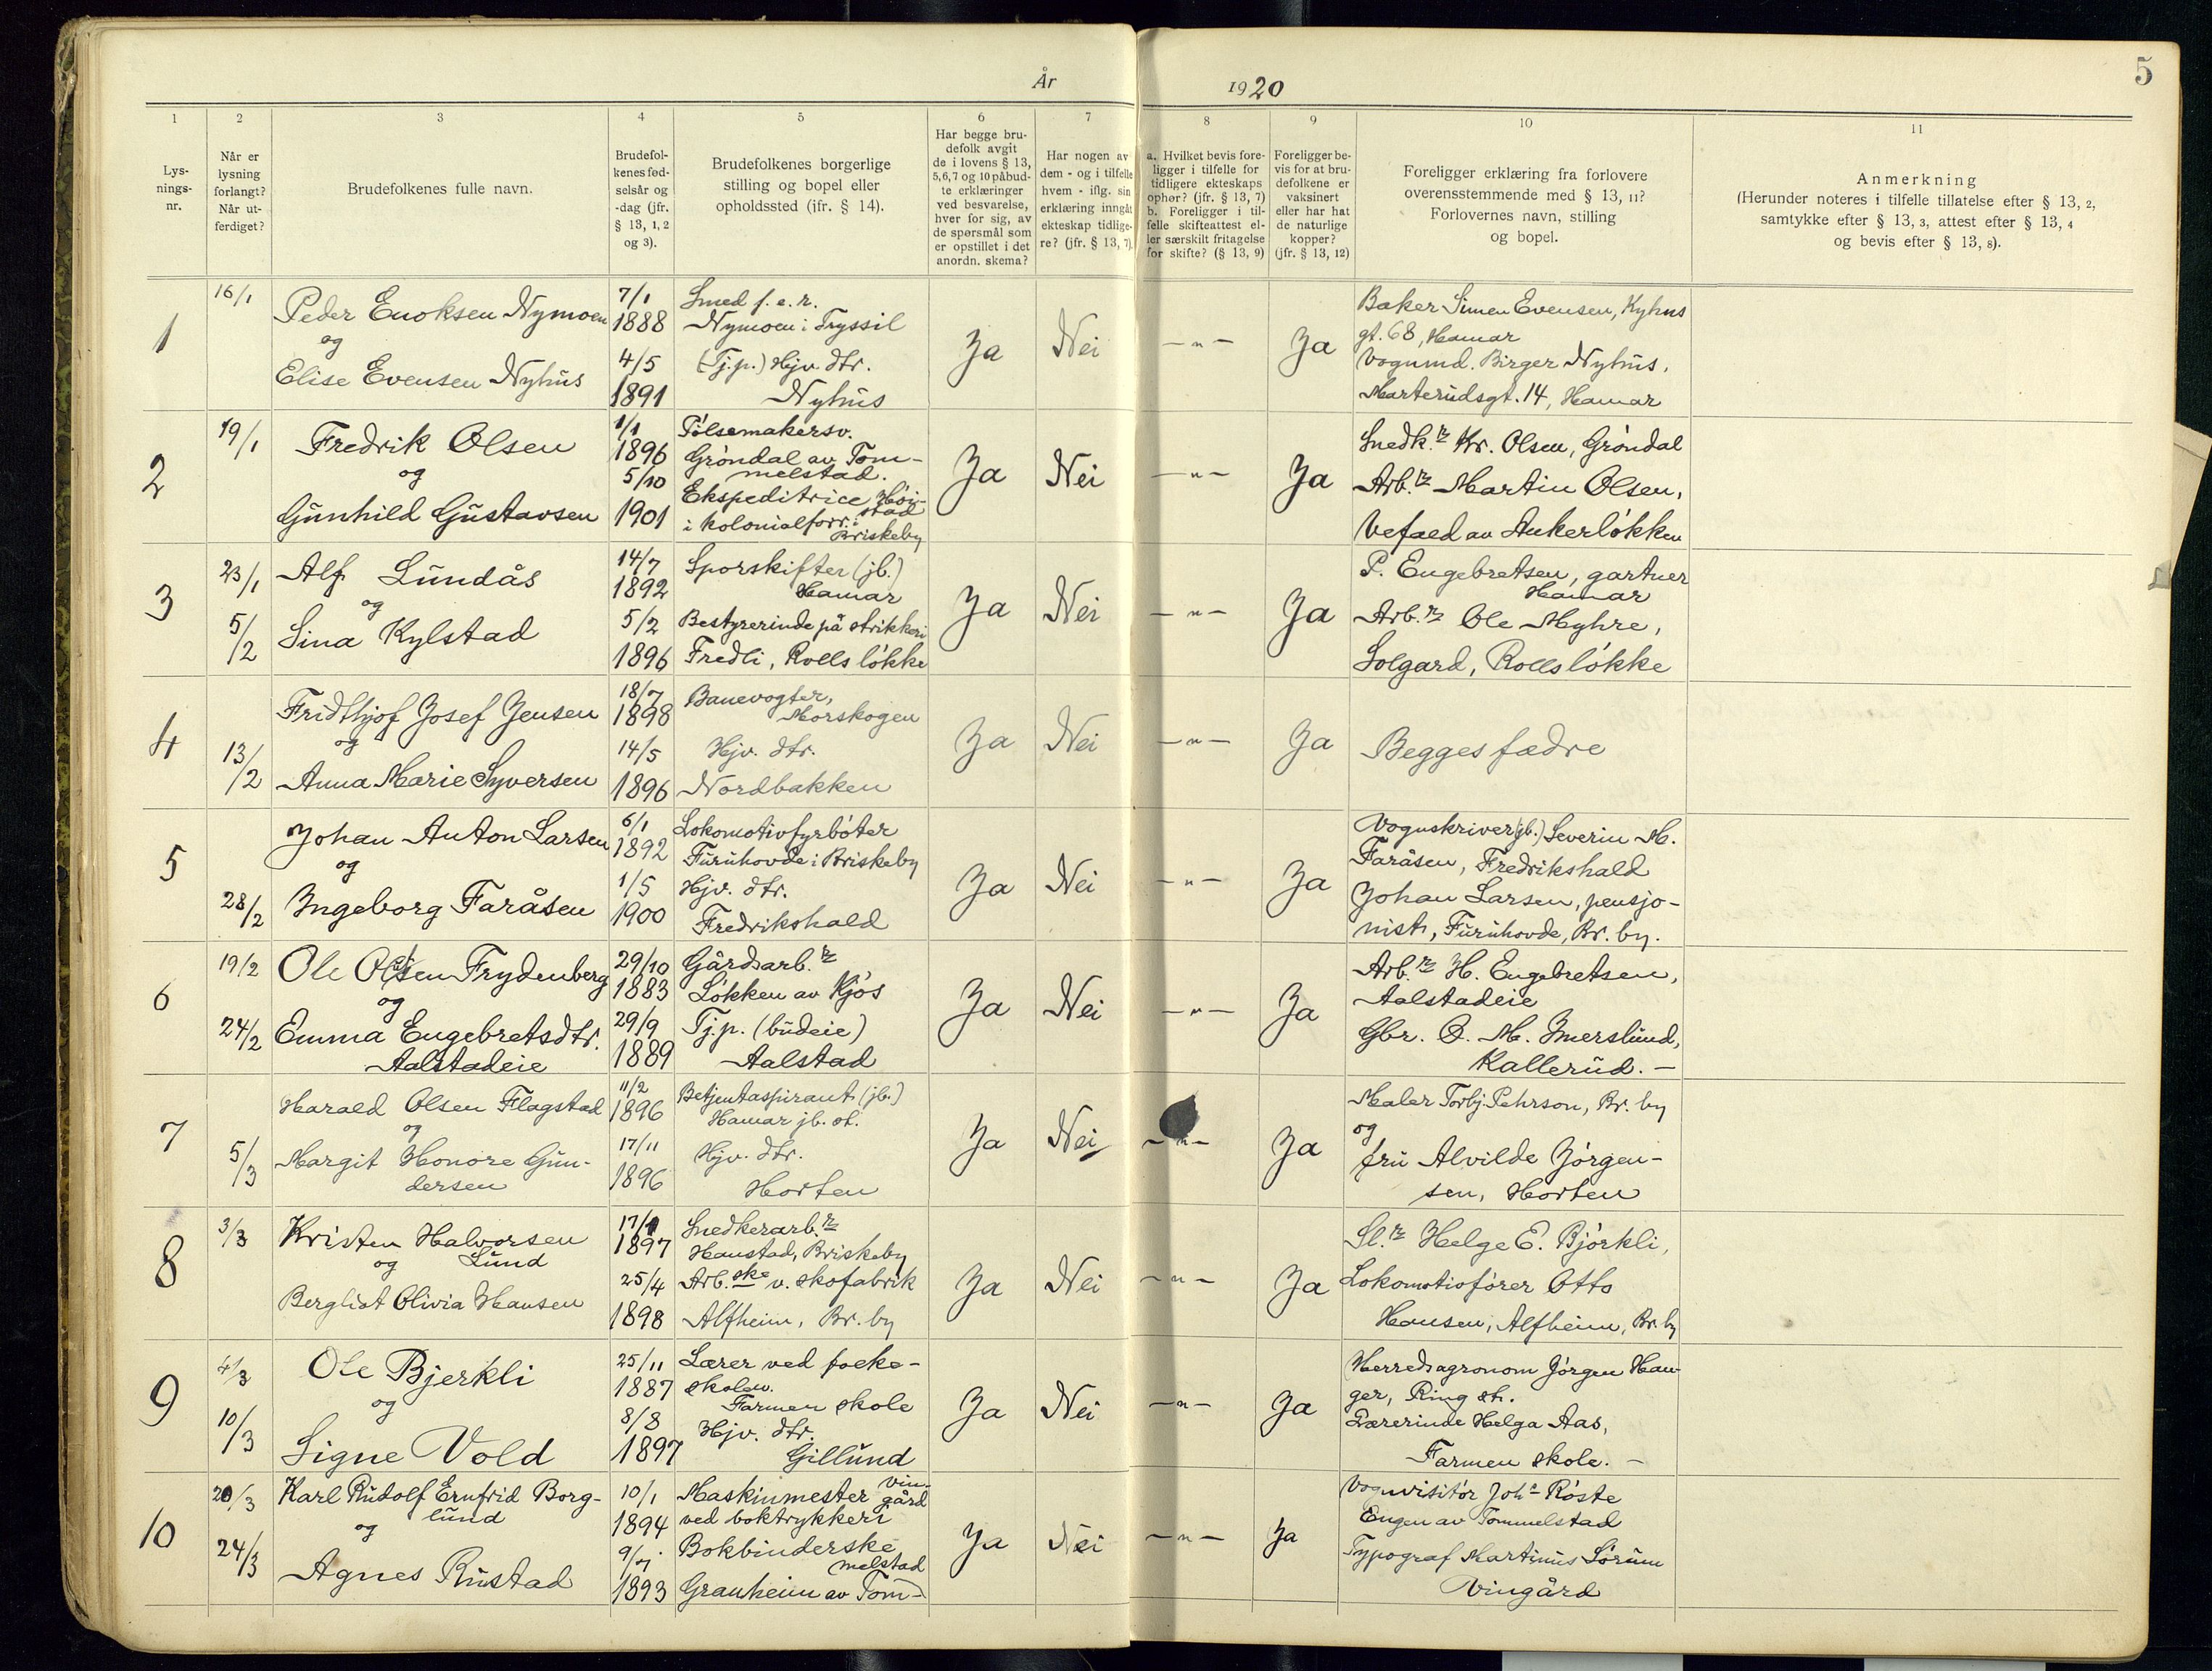 År 1920
5
1 2 3 4 5 6 7 8 9 10 11
Lys-
nings-
nr.
Når er
lysning
forlangt?
Når ut-
ferdiget?
Brudefolkenes fulle navn.
Brudefol-
kenes fød-
selsår og
-dag (jfr.
§ 13, 1, 2
og 3).
Brudefolkenes borgerlige
stilling og bopel eller
opholdssted (jfr. § 14).
Har begge bru-
defolk avgit
de i lovens § 13,
5,6,7 og 10 påbud-
te erklæringer
ved besvarelse,
hver for sig, av
de spørsmål som
er opstillet i det
anordn. skema?
Har nogen av
dem - og i tilfelle
hvem - iflg. sin
erklæring inngåt
ekteskap tidlige-
re? (jfr. § 13, 7).
a. Hvilket bevis fore-
ligger i tilfelle for
tidligere ekteskaps
ophør? (jfr. § 13, 7)
b. Foreligger i til-
felle skifteattest el-
ler særskilt fritagelse
for skifte? (§ 13, 9)
Foreligger be-
vis for at bru-
defolkene er
vaksinert
eller har hat
de naturlige
kopper?
(jfr. § 13, 12)
Foreligger erklæring fra forlovere
overensstemmende med § 13, 11?
Forlovernes navn, stilling
og bopel.
Anmerkning
(Herunder noteres i tilfelle tillatelse efter § 13, 2,
samtykke efter § 13, 3, attest efter § 13, 4
og bevis efter § 13, 8).
1
16/1
Peder Enoksen Nymoen
og
Elise Evensen Nyhus
7/1
1888
4/5
1891
Smed f. e. r.
Nymoen i Tryssil
(Tj.p.) Hjv. dtr.
Nyhus
Ja
Nei
— " —
Ja
Baker Simen Evensen, Kyhus
gt. 68, Hamar
Vognmd. Birger Nyhus,
Marterudsgt. 14, Hamar
2
19/1
Fredrik Olsen
og
Gunhild Gustavsen
1/1
1896
5/10
1901
Pölsemakersv.
Gröndal av Tom-
melstad.
Ekspeditrice Höi-
stad
i kolonialforr. i
Briskeby
Ja
Nei
— " —
Ja
Snedk.r Kr. Olsen, Gröndal
Arb.r Martin Olsen,
Vefald av Ankerlökken
3
23/1
5/2
Alf Lundås
og
Lina Kylstad
14/7
1892
5/2
1896
Sporskifter (jb.)
Hamar
Bestyrerinde på strikkeri
Fredli, Rolls lökke
Ja
Nei
— " —
Ja
P. Engebretsen, gartner
Hamar
Arb.r Ole Myhre,
Solgard, Rolls lökke
4
13/2
Fridthjof Josef Jensen
og
Anna Marie Syversen
18/7
1898
14/5
1896
Banevogter,
Morskogen
Hjv. dtr.
Nordbakken
Ja
Nei
— " —
Ja
Begges fædre
5
28/2
Johan Anton Larsen
og
Ingeborg Faråsen
6/1
1892
1/5
1900
Lokomotivfyrböter
Furuhovde i Briskeby
Hjv. dtr.
Fredrikshald
Ja
Nei
— " —
Ja
Vognskriver (jb.) Severin M.
Faråsen, Fredrikshald
Johan Larsen, pensjo-
nist, Furuhovde, Br. by.
6
19/2
24/2
Ole Olsen Frydenberg
og
Emma Engebretsdtr.
Aalstadeie
29/10
1883
29/9
1889
Gårdsarb.r
Lökken av Kjós
Tj.p. (budeie)
Aalstad
Ja
Nei
— " —
Ja
Arb.r H. Engebretsen,
Aalstadeie
Gbr. O. M. Imerslund,
Kallerud. —
7
5/3
Harald Olsen Flagstad
og
Margit Honore Gun-
dersen
11/2
1896
17/11
1896
Betjentaspirant (jb.)
Hamar jb. st.
Hjv. dtr.
Horten
Ja
Nei
— " —
Ja
Maler Torbj. Pehrson, Br. by
og
fru Alvilde Jörgen-
sen, Horten
8
3/3
Kristen Halvorsen
og Lund
Bergliot Olivia Hansen
17/1
1897
25/4
1898
Snedkerarb.r
Hanstad, Briskeby
Arb.ske v. skofabrik
Alfheim, Br. by
Ja
Nei
— " —
Ja
Sl.r Helge E. Björkli,
Lokomotivförer Otto
Hansen, Alfheim, Br. by
9
4/3
10/3
Ole Bjerkli
og
Signe Vold
25/11
1887
8/8
1897
Lærer ved folke-
skolen.
Farmen skole
Hjv. dtr.
Gillund
Ja
Nei
— " —
Ja
Herredsagronom Jörgen Hau-
ger, Ring st.
Lærerinde Helga Aas,
Farmen skole. —
10
20/3
24/3
Karl Rudolf Ernfrid Borg-
lund
og
Agnes Rustad
10/1
1894
9/7
1893
Maskinmester Vin-
gård
ved boktrykkeri
Bokbinderske
melstad
Granheim av Tom-
Ja
Nei
— " —
Ja
Vognvisitör Joh.s Röste
Engen av Tommelstad
Typograf Martinus Sörum
Vingård